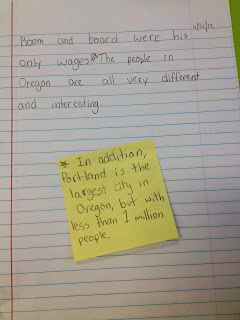 Room and board were his
only wages*The people in
Oregon are all very different
and interesting.
* In addition,
Portland is the
largest city in
Oregon, but with
less than 1 million
people.